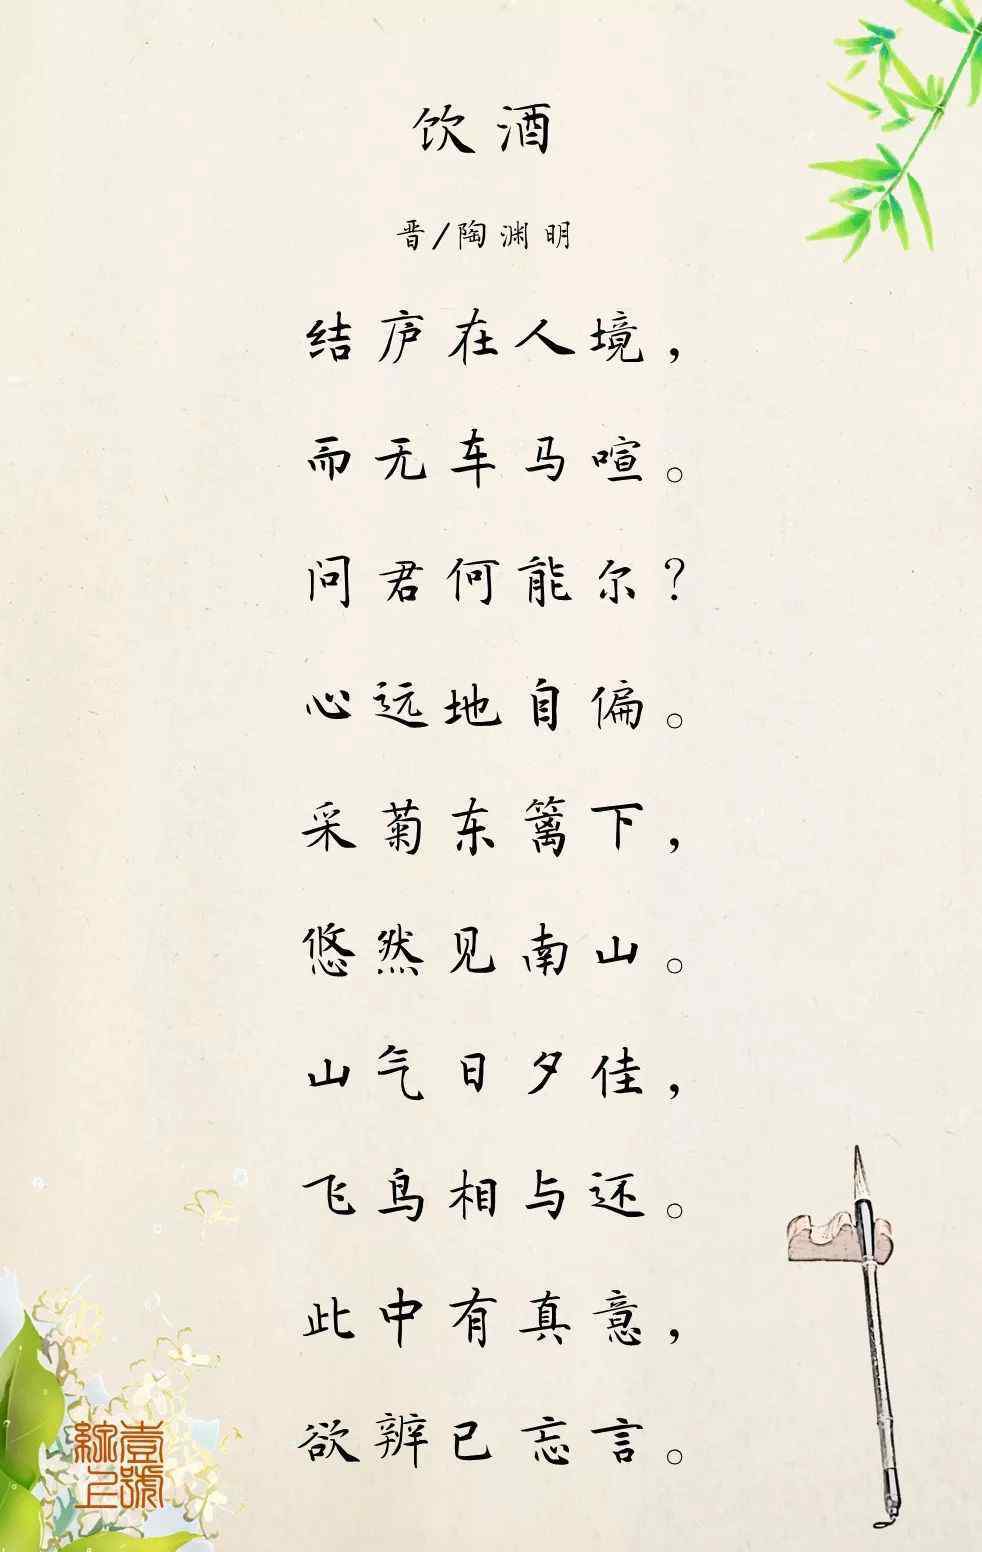 饮酒
晋/陶渊明
结庐在人境，
而无车马喧。
问君何能尔？
心远地自偏。
采菊东篱下，
悠然见南山。
山气日夕佳，
飞鸟相与还。
此中有真意，
欲辨已忘言。